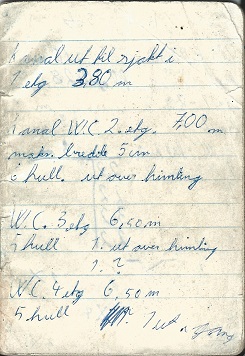 kanal ut til sjakt i
1 etg 3,80 m
kanal W.C. 2. etg. 7,00 m
maks. bredde 5 cm
6 hull. ut over himling
W.C. 3 etg 6,50 m
5 hull 1. ut over himling
1. ?
W.C. 4 etg 6,50 m
5 hull 1 ut